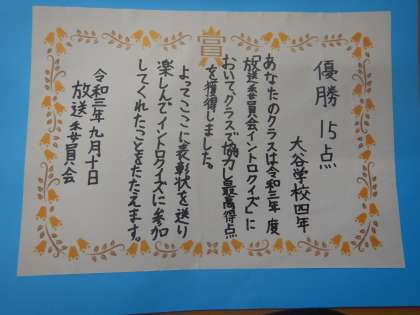 賞
優勝 15点
大谷学校四年
あなたのクラスは令和三年度
「放送委員会イントロクイズ」に
おいて、クラスで協力し最高得点
を獲得しました。
よってここに表彰状を送り
楽しんでイントロクイズに参加
してくれたことをたたえます。
令和三年九月十日
放送委員会